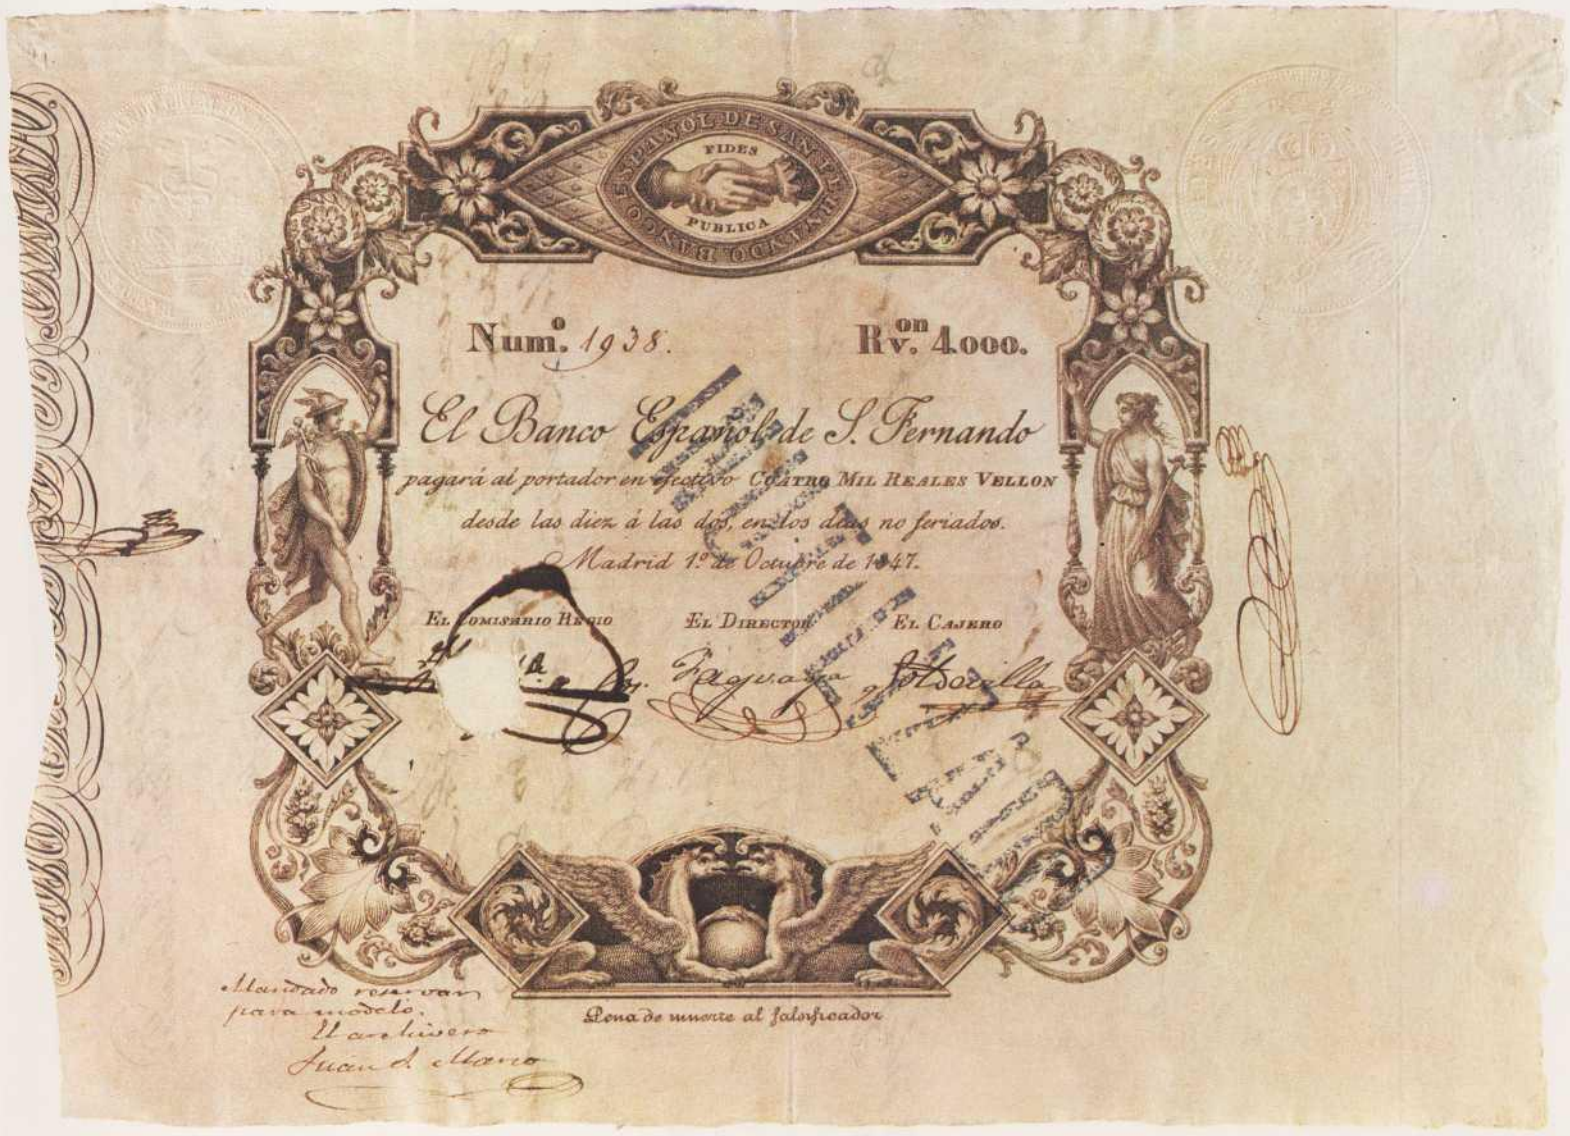 BANCO ESPAÑOL DE SAN FERNANDO.
FIDES
PUBLICA
Num.º 1938.
R.v.on 4000.
El Banco Español de S. Fernando
pagará al portador en efectivo CUATRO MIL REALES VELLON
desde las diez á las dos, en los dias no feriados.
Madrid 1.º de Octubre de 1847.
EL COMISARIO REGIO
EL DIRECTOR
EL CAJERO
Fagoaga
Mandado reservar
para modelo.
El archivero
Juan
Pena de muerte al falsificador